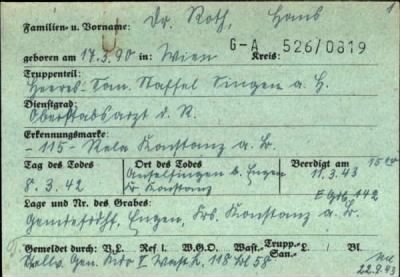 Familien- u. Vorname: Dr. Roth, Hans 1
U
geboren am 17.3.90 in: Wien Kreis: G-A 526/0819
Truppenteil:
Heeres-San. Staffel Singen a. H.
Dienstgrad:
Oberstabsarzt d. R.
Erkennungsmarke:
-115- Rela Konstanz a. B.
Tag des Todes Ort des Todes Beerdigt am
8.3.42 Anselfingen b. Engen 11.3.43
Kr. Konstanz
Lage und Nr. des Grabes: 142
Gemeindefrdh. Engen, Krs. Konstanz a. B.
Gemeldet durch: V.L. Ref. I. W.G.O. Wast.- Trupp.- San.- L. Bl.
Gen. Kdo V Wast. L. 118 Bl 58
22.9.43